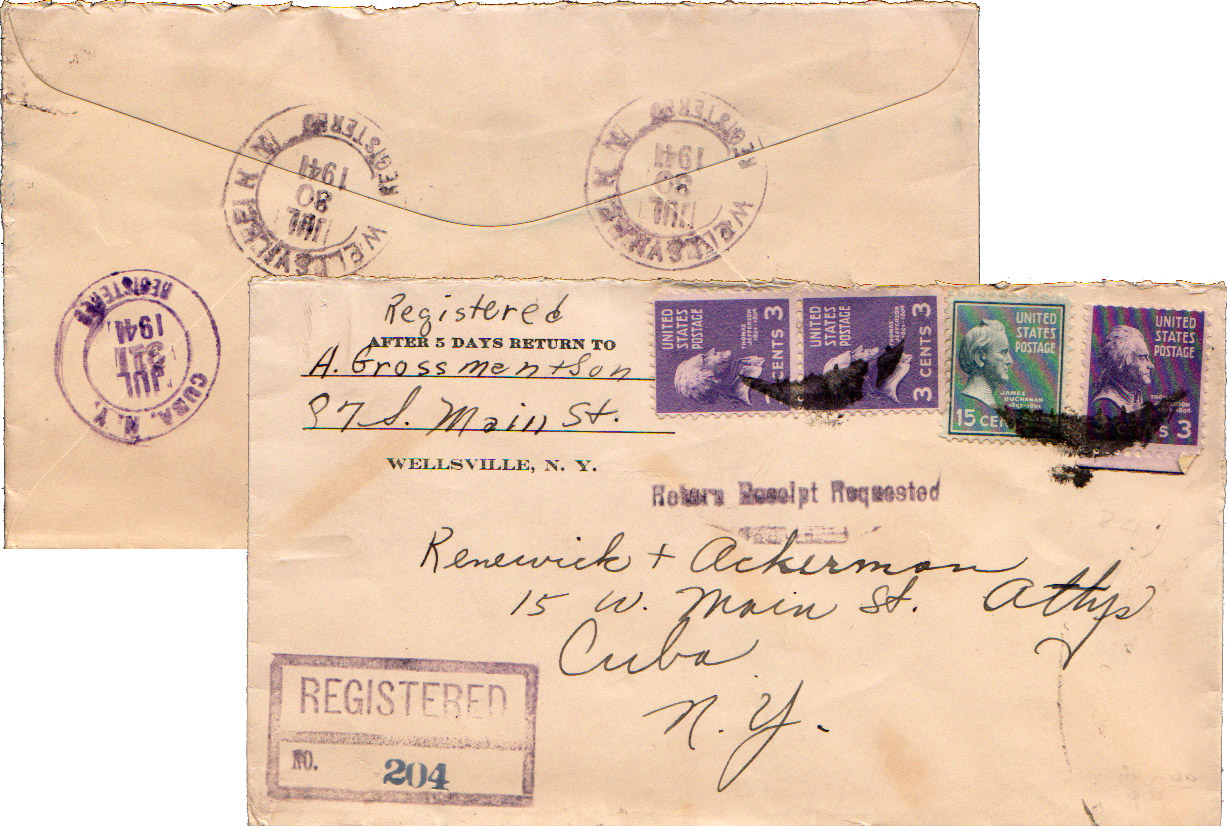 REGISTERED
WELLSVILLE N Y
JUL
30
1941
REGISTERED
WELLSVILLE N Y
JUL
30
1941
REGISTERED
CUBA. N.Y.
JUL
31
1941
Registered
AFTER 5 DAYS RETURN TO
A. Grossmen + Son
97 S. Main St.
WELLSVILLE, N. Y.
UNITED
STATES
POSTAGE
THOMAS
JEFFERSON
CENTS 3
UNITED
STATES
POSTAGE
THOMAS
JEFFERSON
3 CENTS 3
UNITED
STATES
POSTAGE
JAMES
BUCHANAN
15 CEN
UNITED
STATES
POSTAGE
3
Return Receipt Requested
Renewick + Ackerman
15 W. Main St. Attys
Cuba
N. Y.
REGISTERED
NO. 204